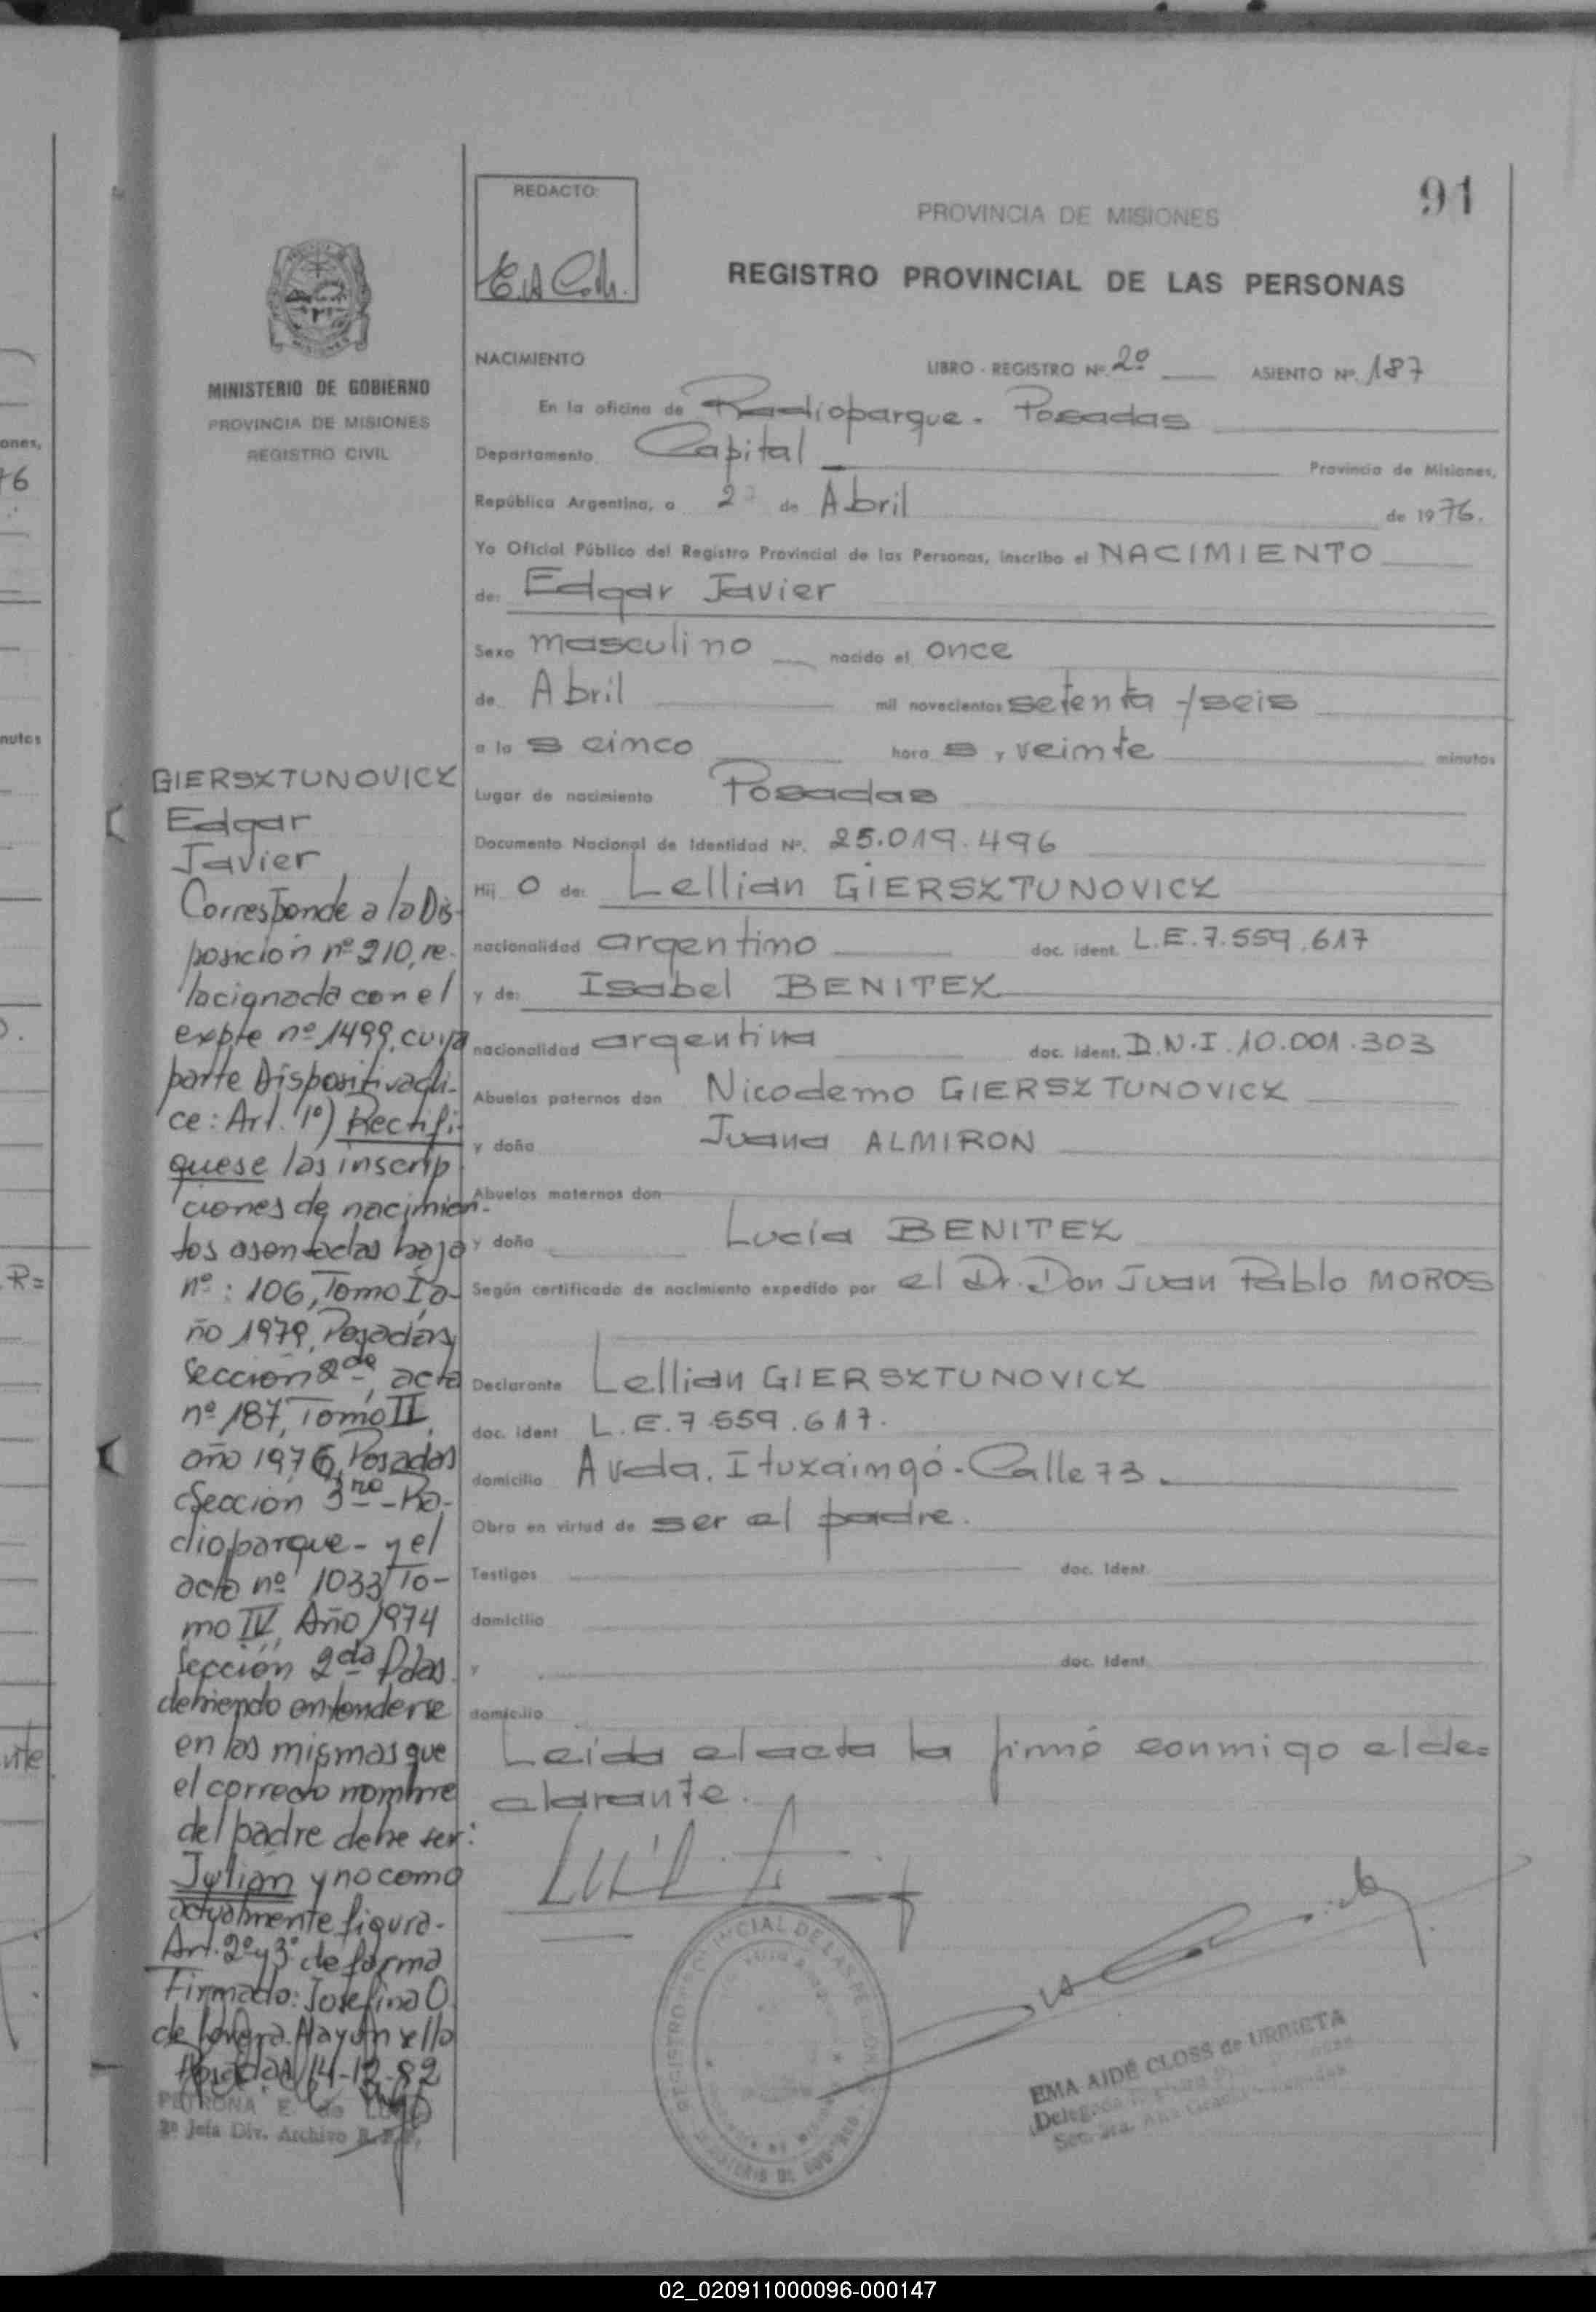 91
REDACTO:
PROVINCIA DE MISIONES
REGISTRO PROVINCIAL DE LAS PERSONAS
MINISTERIO DE GOBIERNO
PROVINCIA DE MISIONES
REGISTRO CIVIL
NACIMIENTO LIBRO - REGISTRO Nº. 2º ASIENTO Nº. 187
En la oficina de Radioparque - Posadas
Departamento Capital Provincia de Misiones,
República Argentina, a 2 de Abril de 1976.
Yo Oficial Público del Registro Provincial de las Personas, inscribo el NACIMIENTO
de: Edgar Javier
Sexo masculino nacido el once
de Abril mil novecientos setenta y seis
a las cinco horas y veinte minutos
Lugar de nacimiento Posadas
Documento Nacional de Identidad Nº. 25.019.496
Hijo de: Lellian GIERSZTUNOVICZ
nacionalidad argentino doc. ident. L.E. 7.559.617
y de: Isabel BENITEZ
nacionalidad argentina doc. ident. D.N.I. 10.001.303
Abuelos paternos don Nicodemo GIERSZTUNOVICZ
y doña Juana ALMIRON
Abuelos maternos don
y doña Lucía BENITEZ
Según certificado de nacimiento expedido por el Dr. Don Juan Pablo MOROS
Declarante Lellian GIERSZTUNOVICZ
doc. ident L.E. 7.559.617.
domicilio Avda. Ituzaingó - Calle 73.
Obra en virtud de ser el padre.
Testigos doc. Ident.
domicilio
y doc. Ident.
domicilio
Leída el acta la firmó conmigo el de=
clarante.
EMA AIDÉ CLOSS de URRIETA
GIERSZTUNOVICZ
Edgar
Javier
Corresponde a la Dis-
posición nº 210, re-
lacionada con el
expte nº 1499, cuya
parte Dispositiva di-
ce: Art. 1º) Rectifi-
quese las inscrip
ciones de nacimien-
tos asentadas bajo
nº: 106, Tomo I a-
ño 1979, Posadas
sección 2da, acta
nº 187, Tomo II,
año 1976, Posadas
Sección 3ra - Ra-
dioparque - y el
acta nº 1033 To-
mo IV, Año 1974
Sección 2da Pdas.
debiendo entenderse
en las mismas que
el correcto nombre
del padre debe ser:
Julián y no como
actualmente figura.
Art. 2º y 3º de forma
Firmado: Josefina O.
de
Posadas 14-12-82
PETRONA E. de
2ª Jefa Div. Archivo R.P.P.
02_020911000096-000147